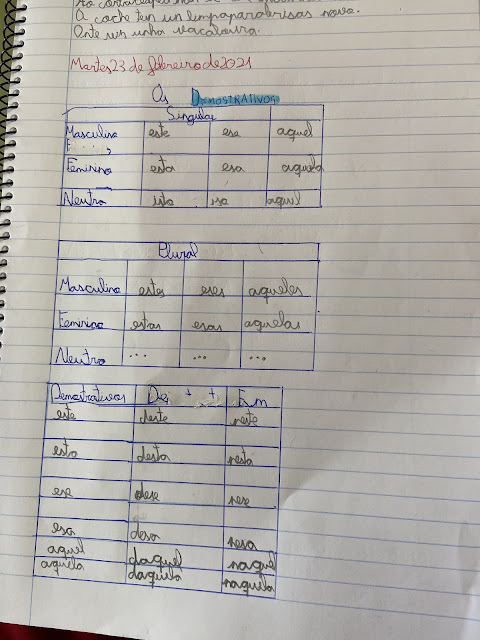 O coche ten un limpaparabrisas novo.
Onte vin unha vacaloura.
Martes 23 de febreiro de 2021
Os DEMOSTRATIVOS
Singular
Masculino este ese aquel
Feminino esta esa aquela
Neutro isto iso aquil
Plural
Masculino estes eses aqueles
Feminino estas esas aquelas
Neutro ... ... ...
Demostrativos De Em
este deste neste
esta desta nesta
ese dese nese
esa desa nesa
aquel daquel naquel
aquela daquela naquela